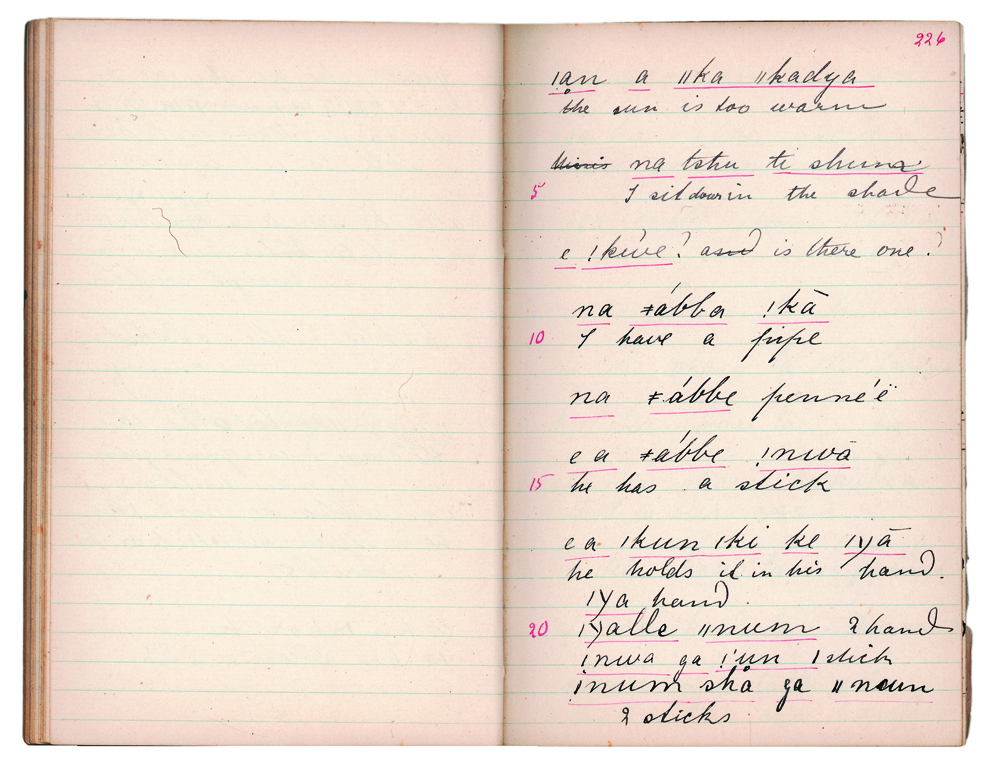 226
ǀan a ǁka ǁkadya
the sun is too warm
na tshu ti shum
5 I sit down in the shade
e ǃkíve? and is there one?
na ǂábba ǃkā
10 I have a pipe
na ǂábbe penné'ë
e a ǂábbe ǃnwā
15 he has a stick
e a ǀkun ǀki ke ǀχā
he holds it in his hand.
ǀχa hand.
20 ǀχalle ǁnum 2 hands
ǃnwa ga ǃ'un 1 stick
ǃnum shȧ ga ǁnoun
2 sticks